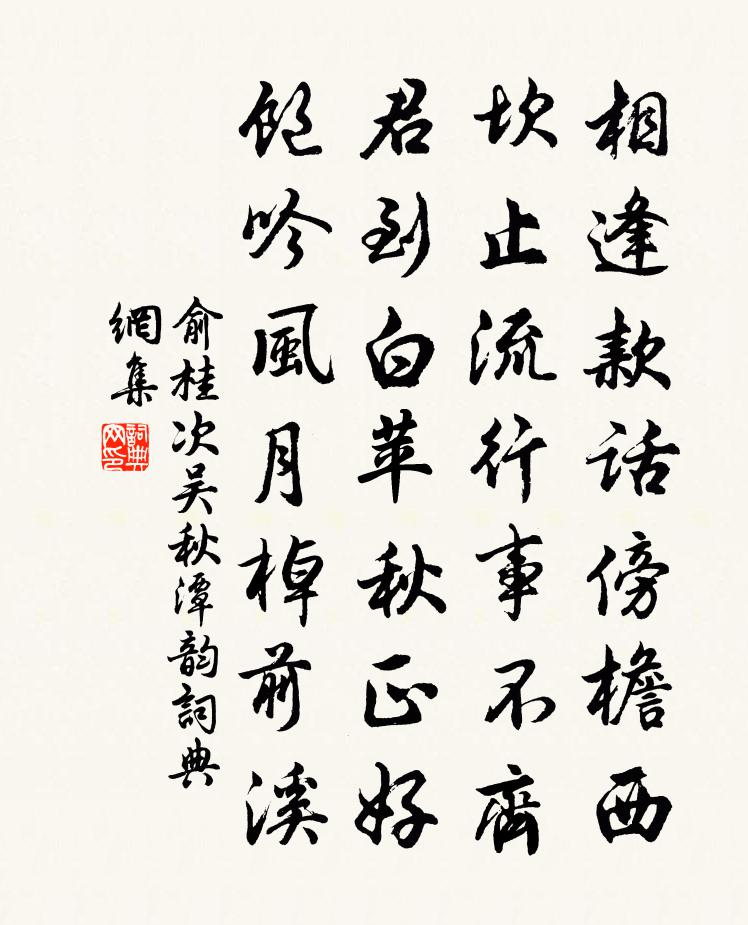 相逢款話傍檐西
坎止流行事不齊
君到白苹秋正好
飽吟風月棹前溪
俞桂次吴秋潭韵詞典
網集
詞典網印